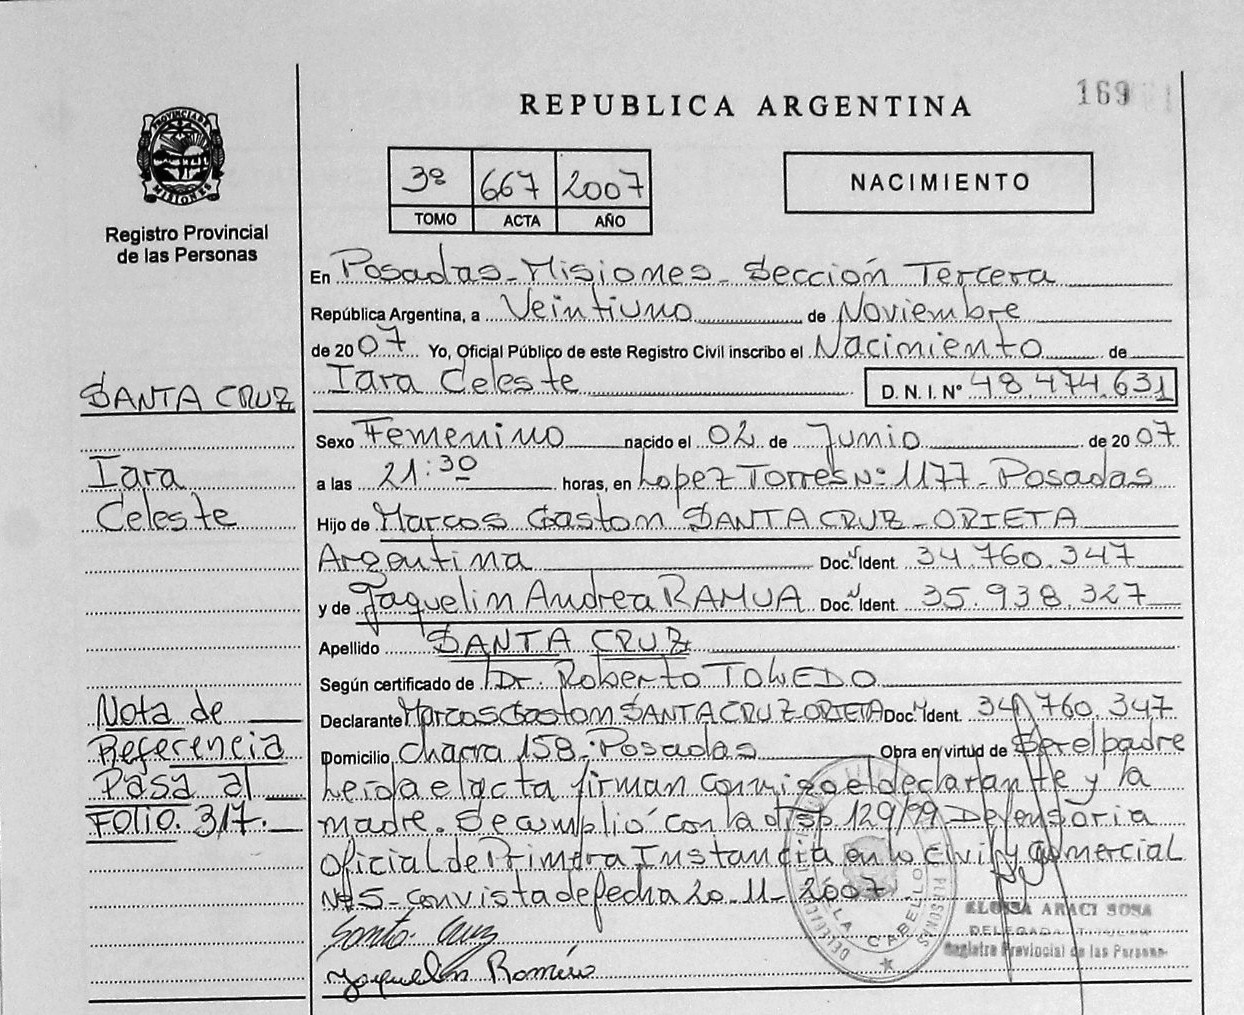 169
REPUBLICA ARGENTINA
PROVINCIA DE MISIONES
Registro Provincial
de las Personas
3º 667 2007
TOMO ACTA AÑO
NACIMIENTO
En Posadas - Misiones - Sección Tercera
República Argentina, a Veintiuno de Noviembre
de 2007 Yo, Oficial Público de este Registro Civil inscribo el Nacimiento de
Iara Celeste D. N. I. Nº 48.474.631
SANTA CRUZ
Iara
Celeste
Sexo Femenino nacido el 02 de Junio de 2007
a las 21:30 horas, en Lopez Torres Nº 1177 - Posadas
Hijo de Marcos Gaston SANTA CRUZ - ORIETA
Argentina Doc. Ident. 34.760.347
y de Jaquelin Andrea RAMUA Doc. Ident. 35.938.327
Apellido SANTA CRUZ
Según certificado de Dr. Roberto TOLEDO
Declarante Marcos Gaston SANTA CRUZ - ORIETA Doc. Ident. 34.760.347
Domicilio Chacra 158 - Posadas Obra en virtud de Ser el padre
Leída el acta firman conmigo el declarante y la
madre. Se cumplió con la disp 129/99 Defensoria
Oficial de Primera Instancia en lo civil y comercial
Nº 5 - con vista de fecha 20-11-2007
Nota de
Referencia
Pasa al
FOLIO. 317.
Santa Cruz
Jaquelin
VILLA CABELLO
ELOISA ARACI SOSA
DELEGADA TITULAR
Registro Provincial de las Personas